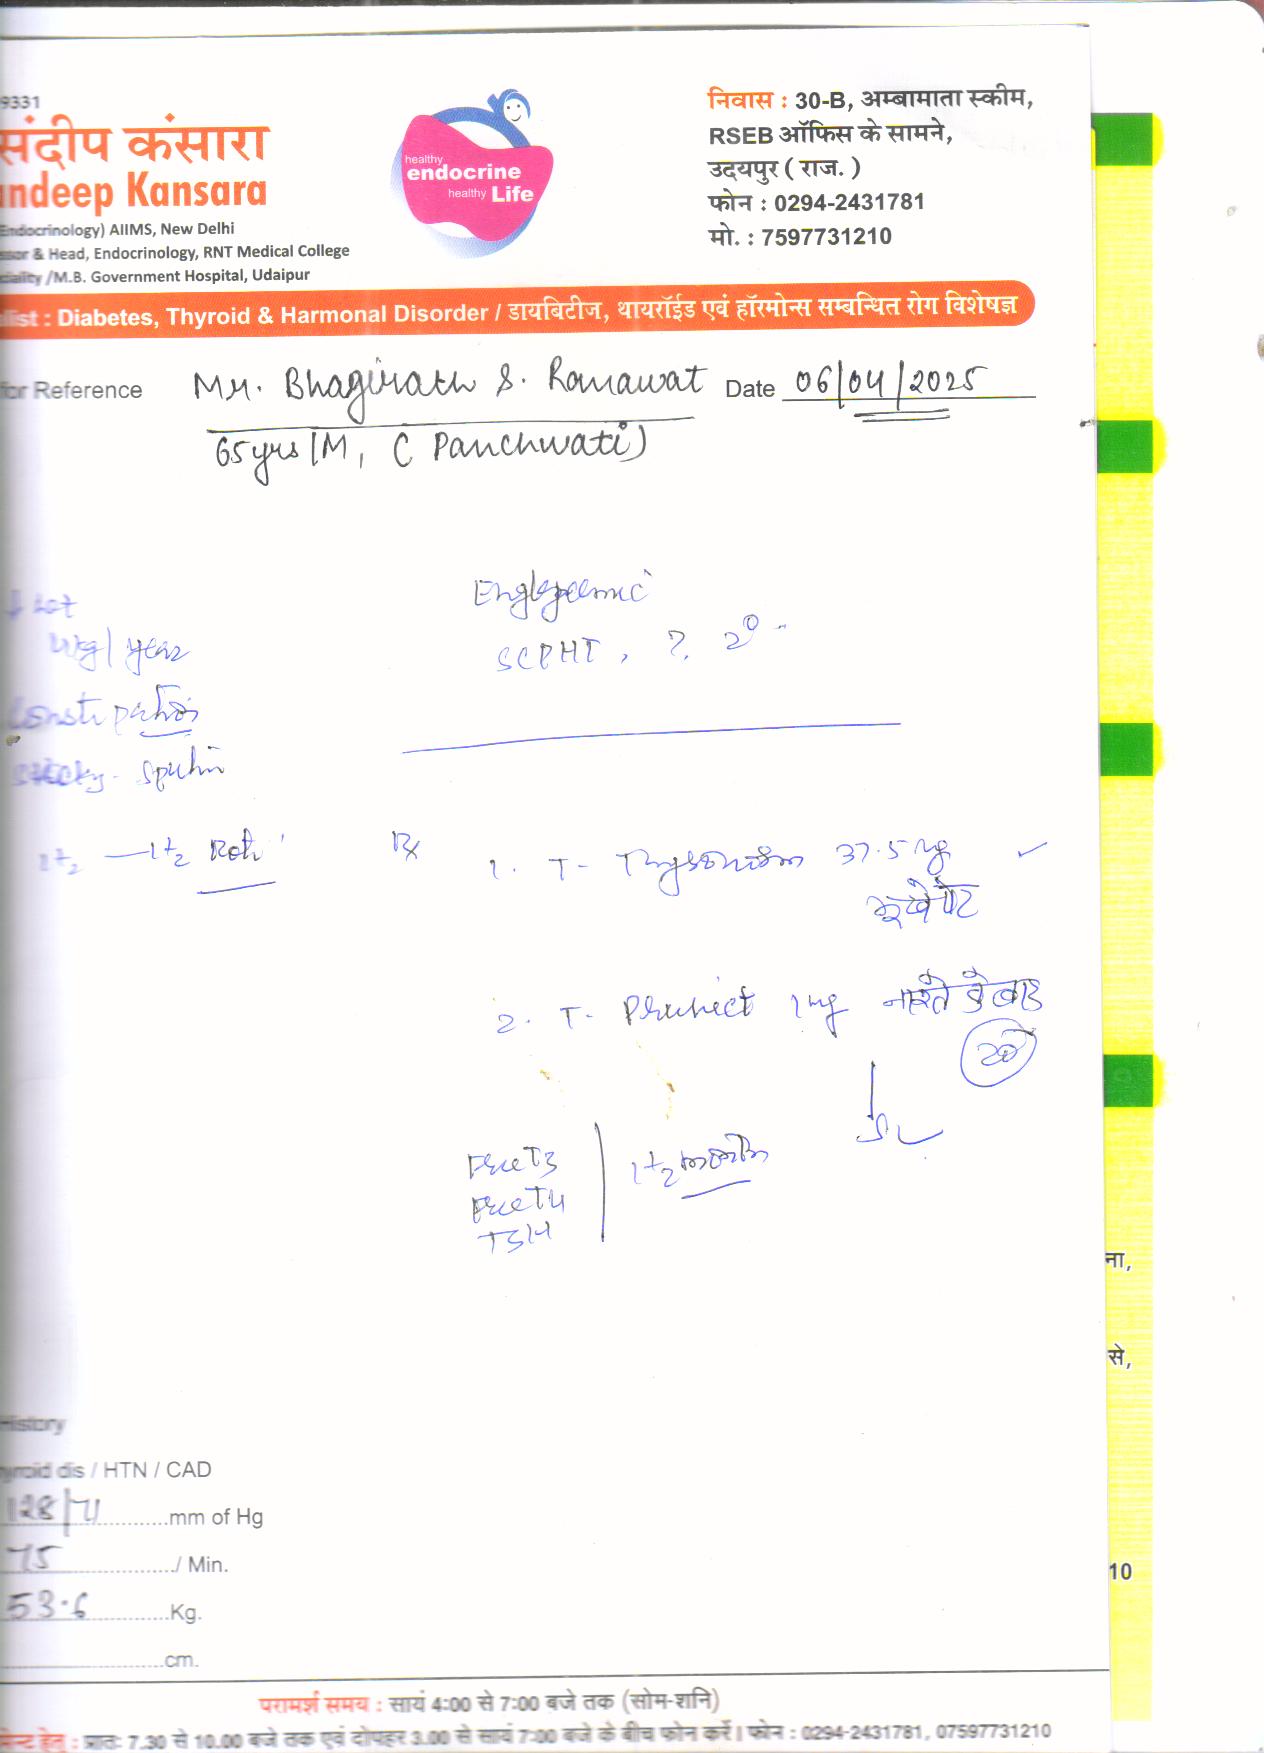 9331
संदीप कंसारा
ndeep Kansara
Endocrinology) AIIMS, New Delhi
ssor & Head, Endocrinology, RNT Medical College
ciality /M.B. Government Hospital, Udaipur
healthy
endocrine
healthy Life
निवास : 30-B, अम्बामाता स्कीम,
RSEB ऑफिस के सामने,
उदयपुर ( राज. )
फोन : 0294-2431781
मो. : 7597731210
list : Diabetes, Thyroid & Harmonal Disorder / डायबिटीज, थायरॉईड एवं हॉरमोन्स सम्बन्धित रोग विशेषज्ञ
for Reference Mr. Bhagirath S. Ramawat Date 06/04/2025
65yrs/M, C Panchwati)
Wg/year
Constipation
Sticky - Sputum
1+2 — 1+2 Roti
SCPHT, ?, 2°
Rx
1. T- 37.5 mg
भूखे पेट
2. T- 1mg नाश्ते के बाद
20
Free T3
Free T4
TSH
1+2 month
History
yroid dis / HTN / CAD
128/71 mm of Hg
75 / Min.
53.6 Kg.
cm.
ना,
से,
10
परामर्श समय : सायं 4:00 से 7:00 बजे तक (सोम-शनि)
मेन्ट हेतु : प्रातः 7.30 से 10.00 बजे तक एवं दोपहर 3.00 से सायं 7:00 बजे के बीच फोन करें। फोन : 0294-2431781, 07597731210